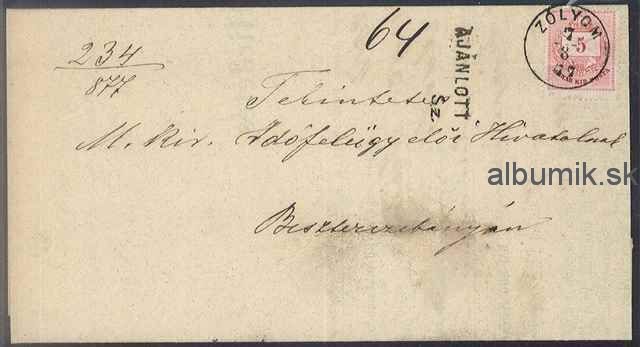 234
877
64
AJÁNLOTT
Sz.
ZÓLYOM
5
Tekintetes
M. kir. Adófelügyelői Hivatalnak
albumik.sk
Besztercebányán